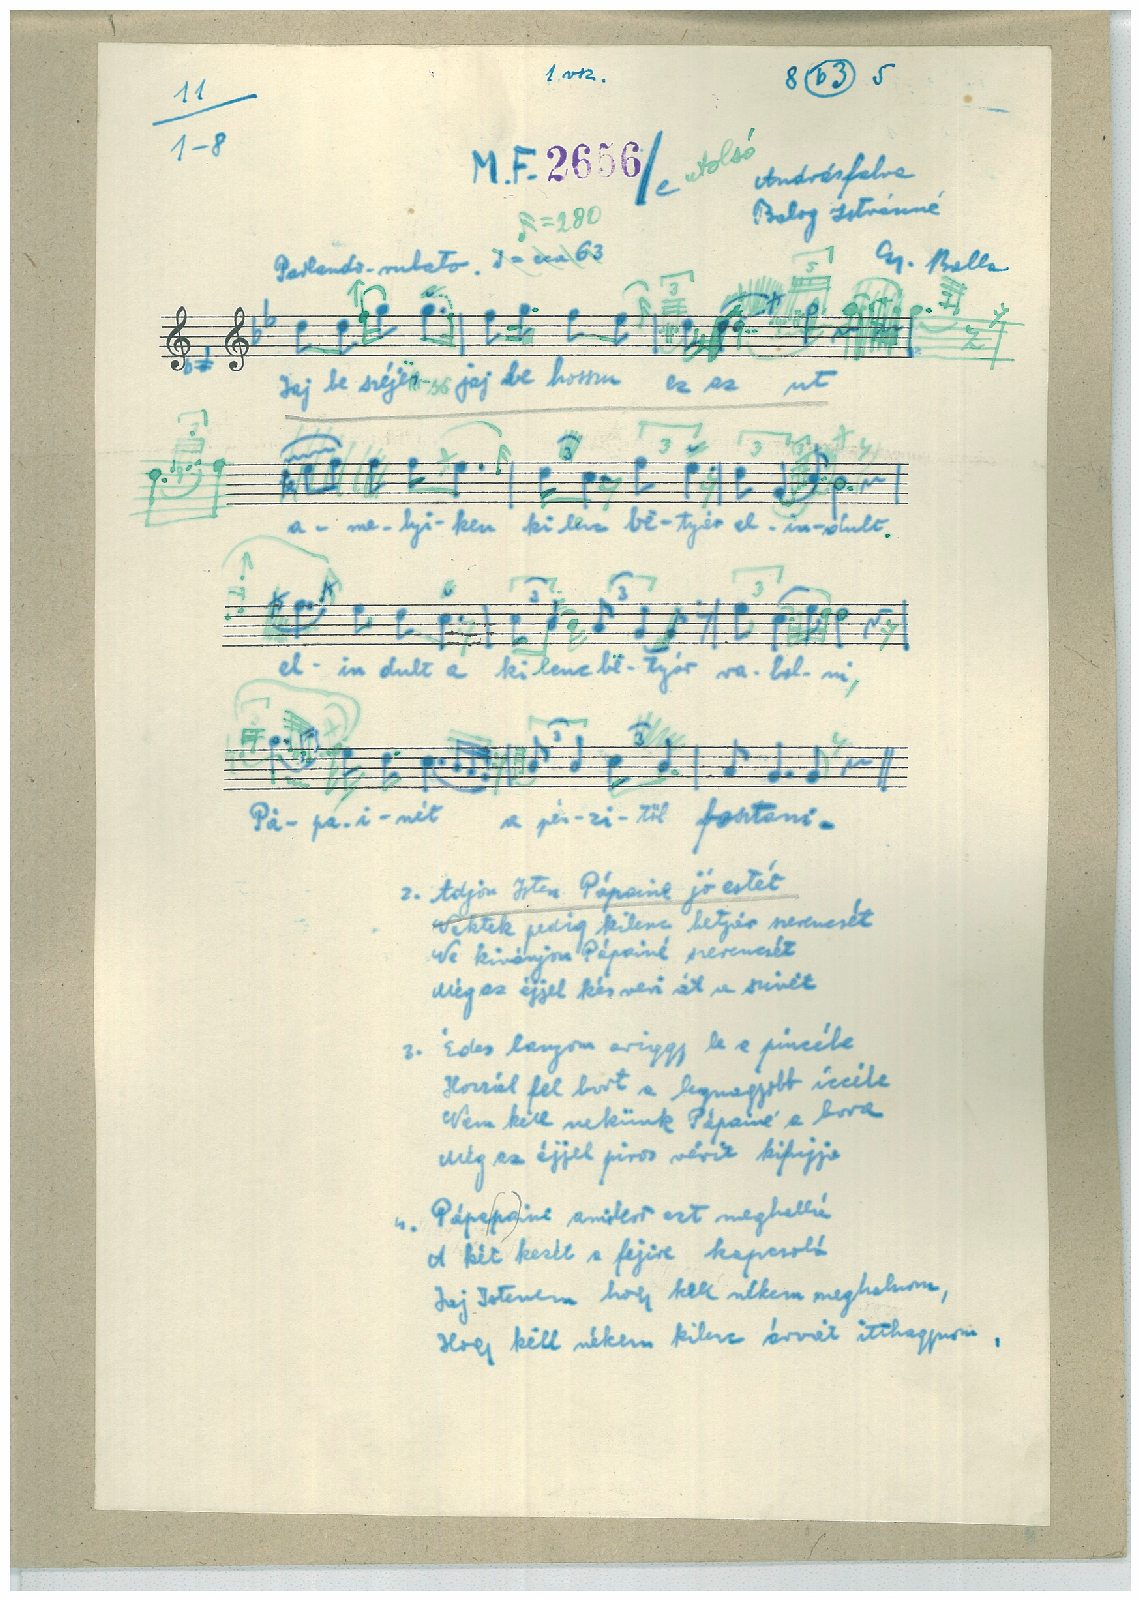 11 1 vsz. 8 b3 5
1-8
M.F. 2656/c utolsó
Andrásfalva
Balog Istvánné
♪=280
Parlando-rubato. ♩= cca 63
Gy. Balla
Jaj be széjes jaj be hosszu ez az ut
a - me - lyi - ken ki lenc bë - tyár el - in - dult.
el - in dult a ki lenc bë - tyár ra - bol - ni,
Pá - pa - i - nét a pén - zi - től fosztani.
2. Adjon Isten Pápainé jó estét
Nektek pedig kilenc betyár szerencsét
Ne kivánjon Pápainé szerencsét
Még az éjjel kés veri át a szivét
3. Édes lányom eriggy le a pincébe
Hozzál fel bort a legnagyobb iccébe
Nem këll nekünk Pápainé a bora
Még az éjjel piros vérit kifujja
4. Pápa(pa)iné amikor ezt meghallá
A két kezét a fejire kapcsolá
Jaj Istenem hogy këll nékem meghalnom,
Hogy këll nékem kilenc árvát itthagynom.